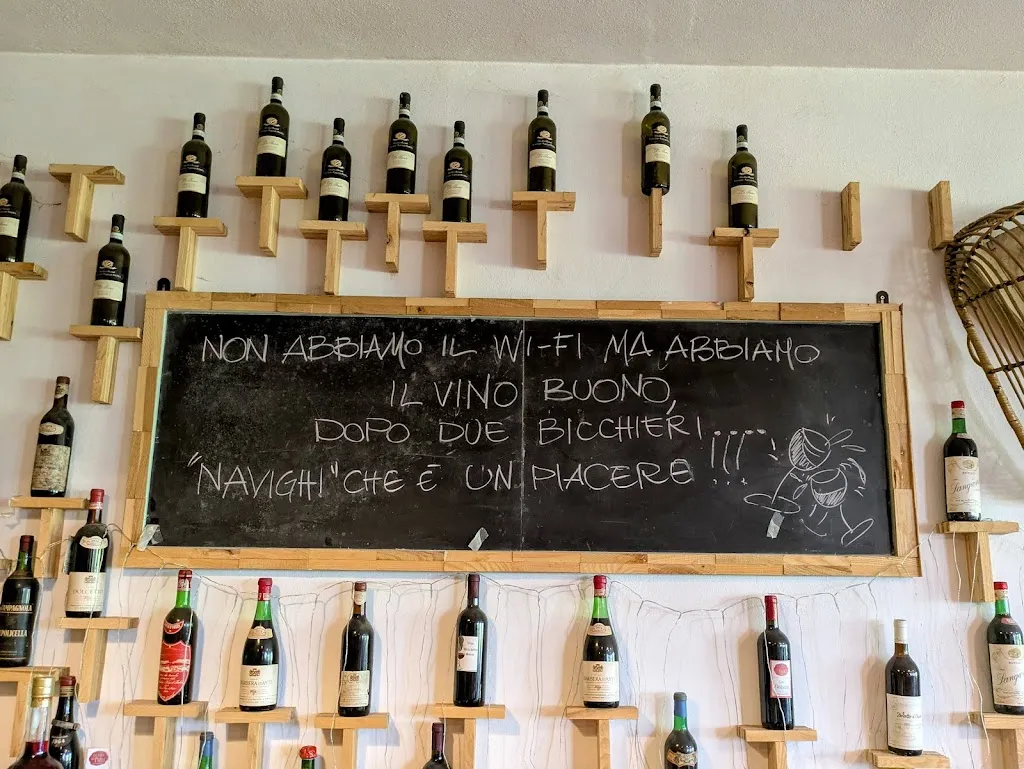 NON ABBIAMO IL WI-FI MA ABBIAMO
IL VINO BUONO,
DOPO DUE BICCHIERI
"NAVIGHI" CHE È UN PIACERE !!!
DOLCETTO